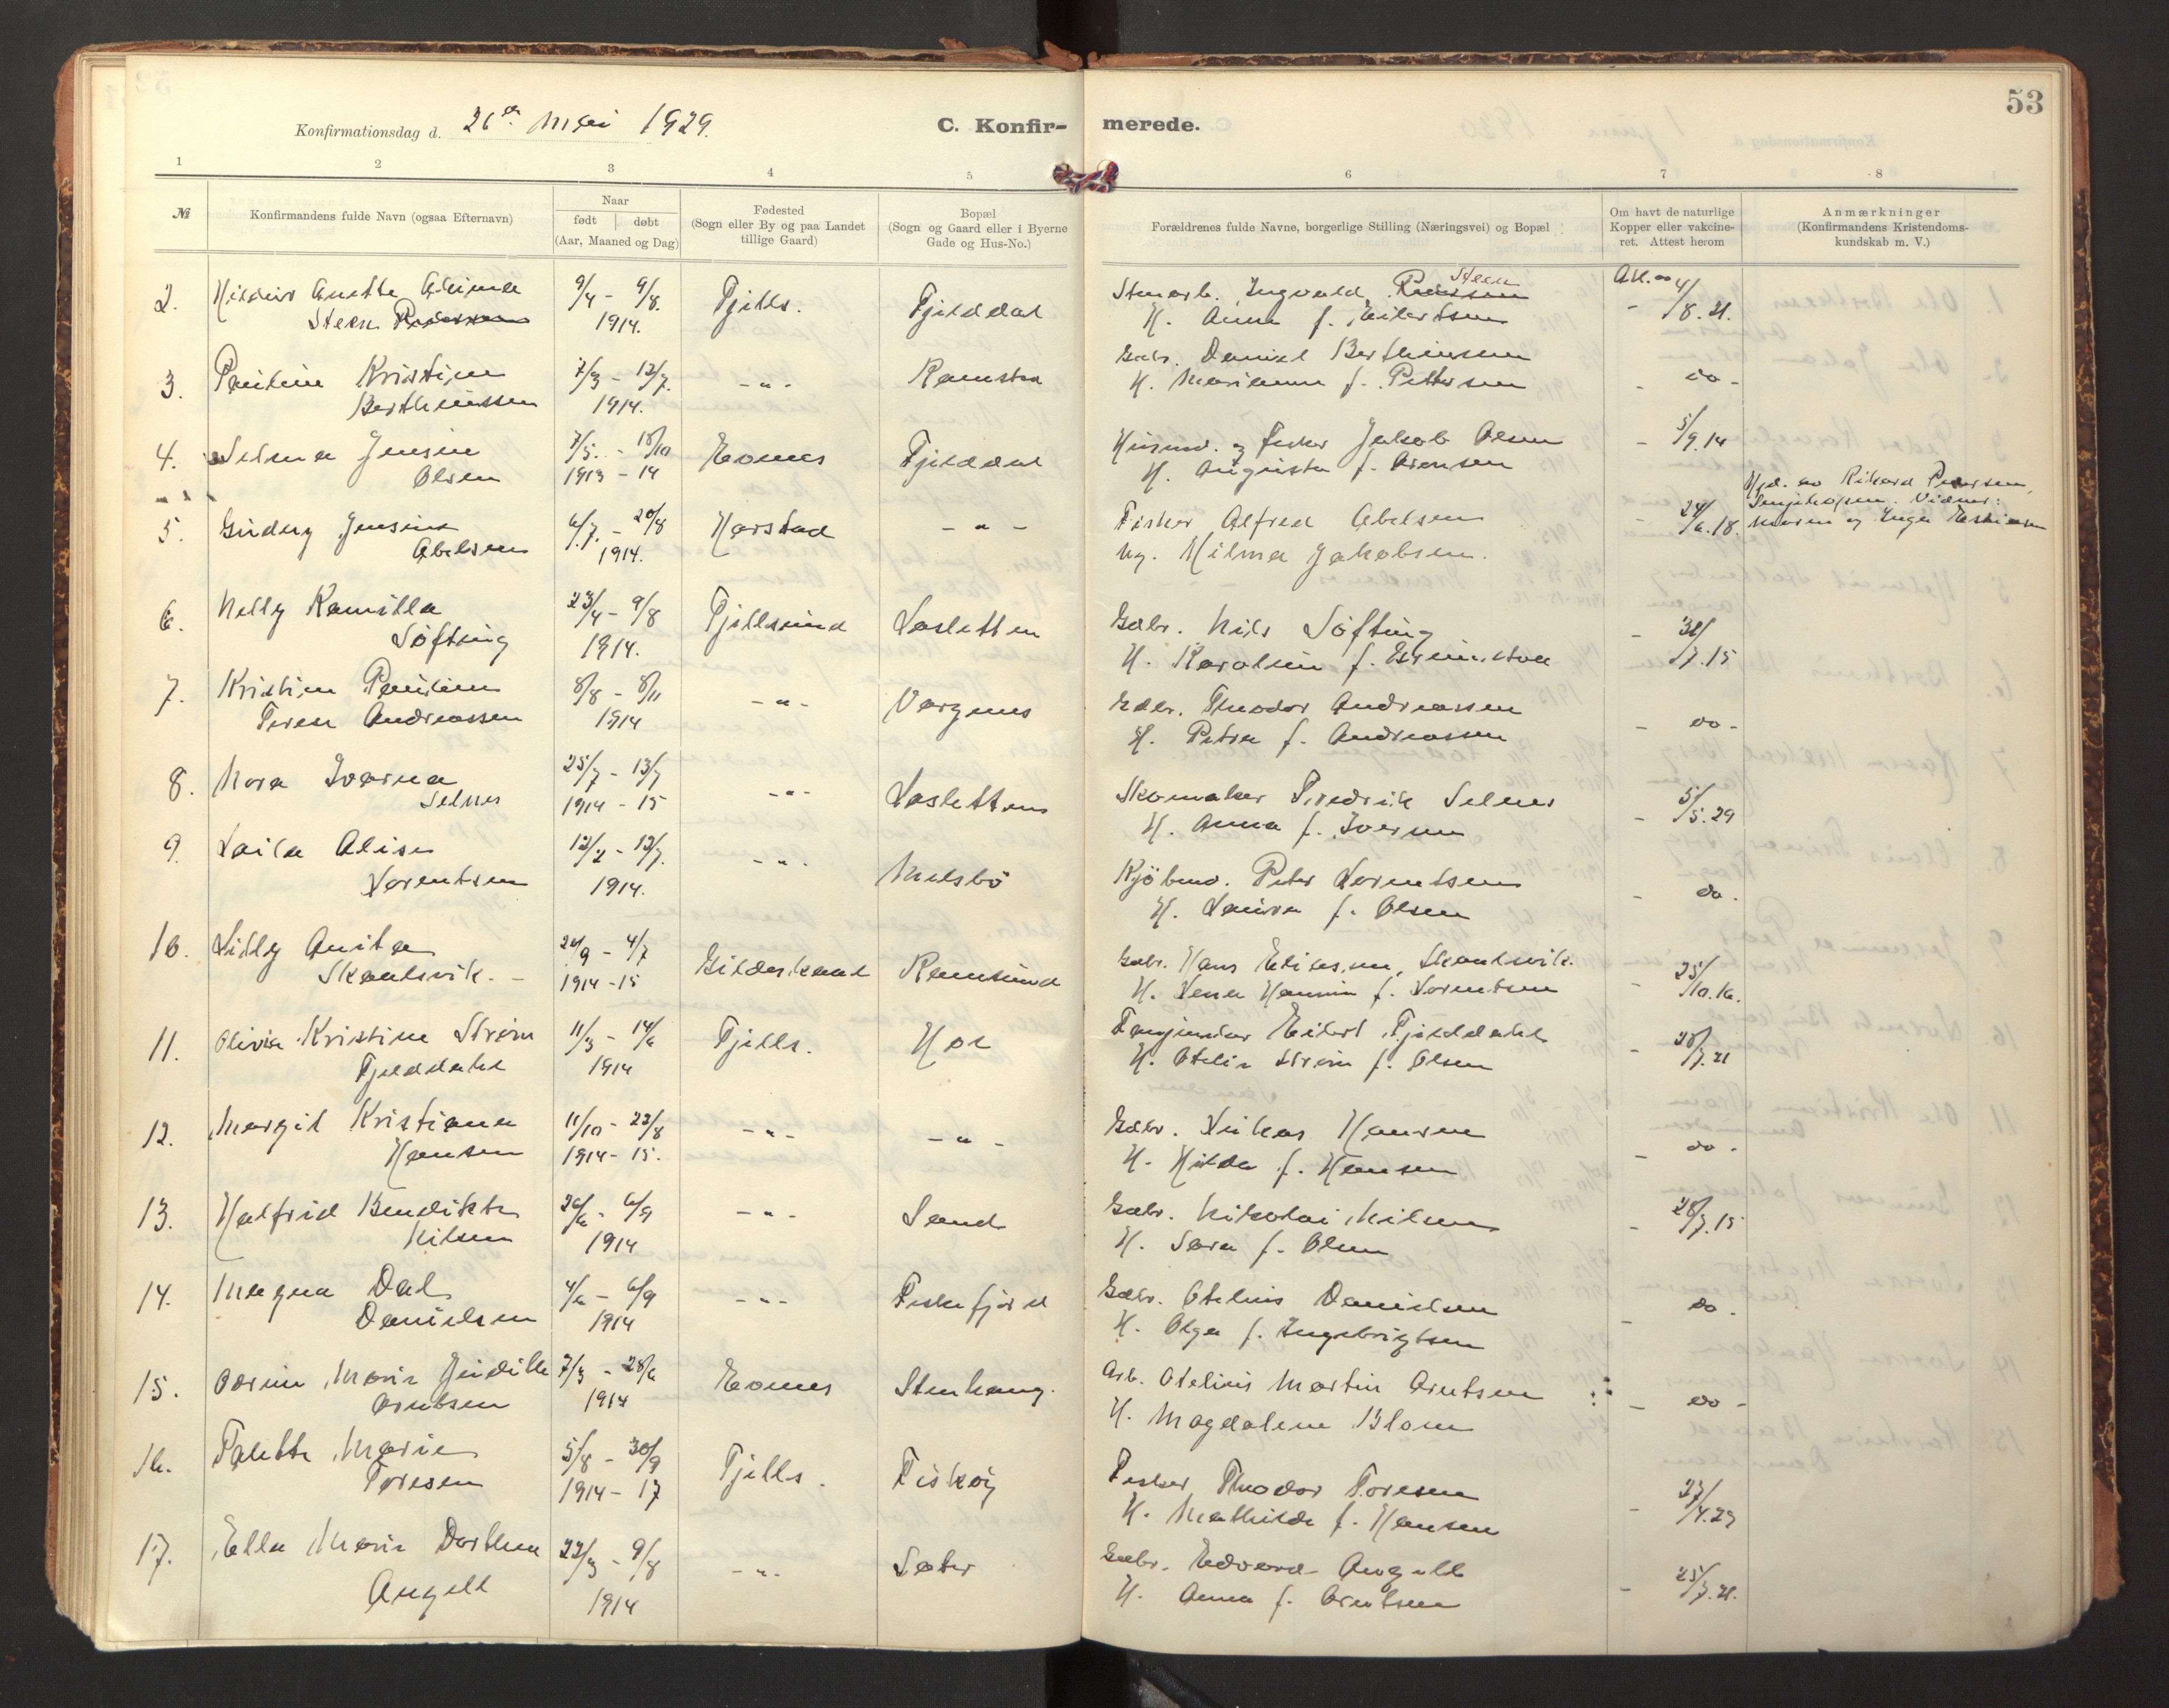 53
Konfirmationsdag d. 26de Mai 1929.
C. Konfir-
merede.
1 2 3 4 5 6 7 8
№
Konfirmandens fulde Navn (ogsaa Efternavn)
Naar
født døbt
(Aar, Maaned og Dag)
Fødested
(Sogn eller By og paa Landet
tillige Gaard)
Bopæl
(Sogn og Gaard eller i Byerne
Gade og Hus-No.)
Forældrenes fulde Navne, borgerlige Stilling (Næringsvei) og Bopæl
Om havt de naturlige
Kopper eller vakcine-
ret. Attest herom
Anmærkninger
(Konfirmandens Kristendoms-
kundskab m. V.)
2. Anette
Steen Pedersen
9/4 - 9/8
1914.
Fjells.
Fjelddal
Ingvald Pedersen Steen
H. Anna f. Eilertsen
4/8.21.
3. Pauline Kristine
Berthinussen
7/3 - 12/7.
1914.
- " -
Ramstra
Gbr. Daniel Berthinussen
H. Marianne f. Pettersen
- do -
4. Selma Jensine
Olsen
7/5. - 18/10
1913 - 14
Evenes
Fjelddal
Husmd. og Fisker Jakob Olsen
H. Augusta f. Arensen
- 5/9.14
5. Gudny Jensine
Abelsen
6/7. - 20/8
1914.
Harstad
- " -
Fisker Alfred Abelsen
Ug. Hilma Jakobsen.
- 24/6.18.
Hjd. av Rikard Pedersen,
Senjehopen. Vidner:
6. Nelly Kamilla
Søfting
23/4 - 9/8
1914.
Fjellsund
Lasletten
Gbr. Nils Søfting
H. Karoline f.
- 31/7.15
7. Kristine Pauline
Andreassen
8/8 - 8/11
1914
- " -
Vargnes
Gbr. Theodor Andreassen
H. Petra f. Andreassen
- do -
8. Nora Ivarna
Selnes
25/7 - 13/7
1914 - 15
- " -
Lasletten
Skomaker Fredrik Selnes
H. Anna f. Iversen
- 5/5.29
9. Laila Alise
Lorentsen
12/2 - 12/7.
1914.
- " -
Melsbø
Kjøbmd. Peter Lorentsen
H. Laura f. Olsen
- do.
10. Lilly Anita
Skandsvik.
24/9 - 4/7
1914 - 15
Gildeskaal
Ramsund
Gbr. Hans Eliassen, Skandsvik.
H. Lena f. Lorentsen
- 25/10.16.
11. Olivia Kristine Strøm
Fjelddahl
11/3 - 14/6
1914
Fjells.
Hol
Eilert Fjelddahl
H. Otelie Strøm f. Olsen
- 28/7.21
12. Margit Kristiane
Hansen
11/10 - 22/8
1914 - 15.
- " -
- " -
Gbr. Hansen
H. Hilda f. Hansen
- do -
13. Halfrid Bendikte
Nilsen
26/6 - 6/9
1914
- " -
Sand
Gbr. Nikolai Nilsen
H. Sara f. Olsen
- 28/7.15
14. Magna Dal
Danielsen
4/6 - 6/9
1914
- " -
Fiskefjord
Gbr. Otelius Danielsen
H. Olga f. Ingebrigtsen
- do.
15. Marie Judith
Arntsen
7/3 - 28/6
1914
Evenes
Stenhaug.
Arb. Otelius Martin Arntsen
H. Magdalene Blom
- do -
16. Marie
Toresen
5/8 - 30/9
1914 - 17
Fjells.
Fiskøy
Fisker Theodor Toresen
H. Mathilde f. Hansen
- 27/4.29
17. Ella Marie Dorthea
Angell
22/3 - 9/8
1914
- " -
Sæter
Gbr. Edvard Angell
H. Anna f. Arntsen
- 25/7.21.